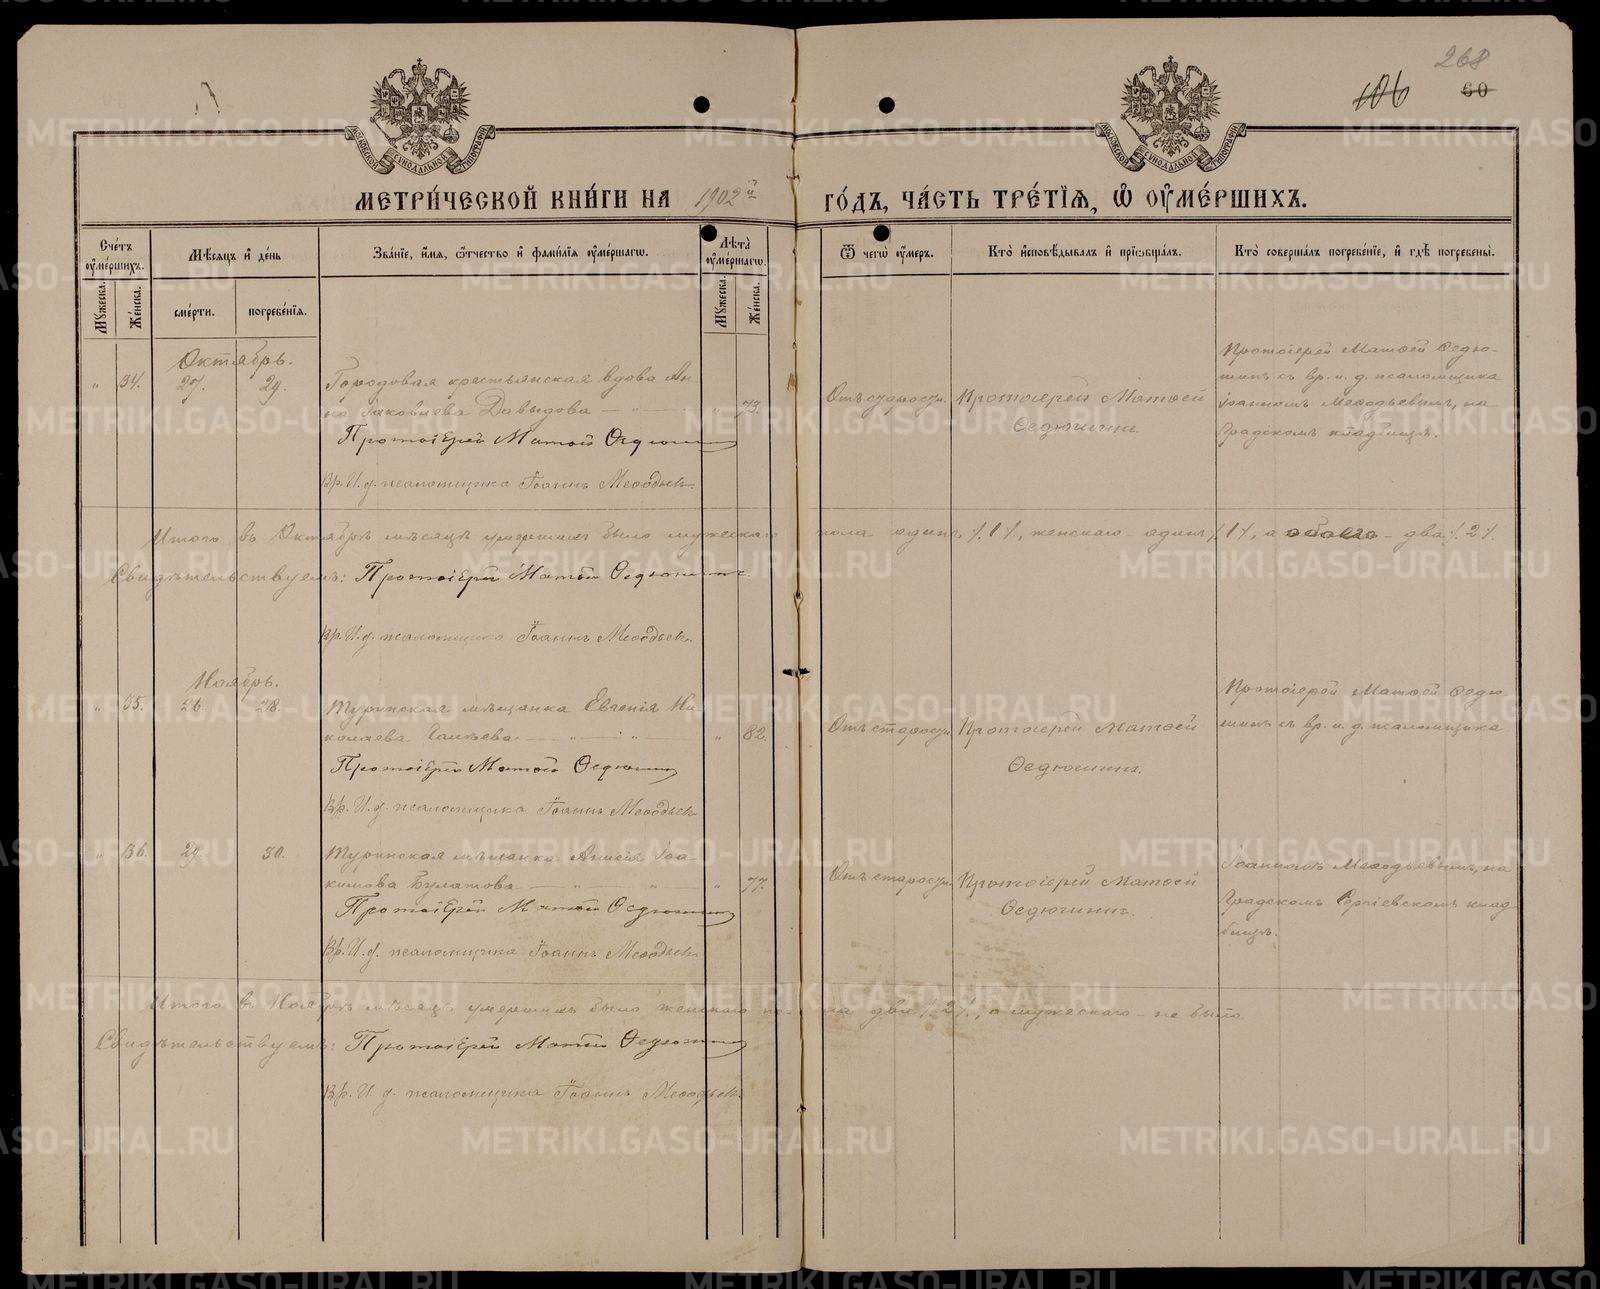 268
106 60
МОСКОВСКОЙ СѴНОДАЛЬНОЙ ТИПОГРАФІИ
МОСКОВСКОЙ СѴНОДАЛЬНОЙ ТИПОГРАФІИ
МЕТРИ́ЧЕСКОЙ КНИ́ГИ НА 1902й ГО́ДЪ, ЧА́СТЬ ТРЕ́ТІѦ, Ѡ ОУ҆МЕ́РШИХЪ.
Сче́тъ оу҆ме́ршихъ.
Мѣ́сяцъ и҆ де́нь
Зва́ніе, и҆́мя, ѻ҆́тчество и҆ фами́лія оу҆ме́ршагѡ.
Лѣ́та оу҆ме́ршагѡ.
Ѿ чегѡ̀ оу҆́меръ.
Кто̀ и҆сповѣ́дывалъ и҆ прїѡбща́лъ.
Кто̀ соверша́лъ погребе́ніе, и҆ гдѣ̀ погребены̀.
Мꙋ́жеска. Же́нска.
сме́рти. погребе́нія.
Мꙋ́жеска. Же́нска.
Октябрь.
" 34. 27. 29. Городовая крестьянская вдова Ан-
на Іаковлева Давыдова — " — 73.
Протоіерей Матѳей Ѳедюшинъ
Вр. И. д. псаломщика Іоаннъ Меѳодьев.
Отъ старости. Протоіерей Матѳей
Ѳедюшинъ
Протоіерей Матѳей Ѳедю-
шинъ съ вр. и. д. псаломщика
Іоанномъ Меѳодьевымъ, на
Градскомъ кладбищѣ.
Итого въ Октябрѣ мѣсяцѣ умершихъ было мужескаго пола одинъ /1/, женскаго – одинъ /1/, а обоего – два /2/.
Свидѣтельствуемъ: Протоіерей Матѳей Ѳедюшинъ.
Вр. И. д. псаломщика Іоаннъ Меѳодьев.
Ноябрь.
" 35. 26. 28. Туринская мѣщанка Евгенія Ни-
колаева — " — " — " 82.
Протоіерей Матѳей Ѳедюшинъ
Вр. И. д. псаломщика Іоаннъ Меѳодьев.
Отъ старости Протоіерей Матѳей
Ѳедюшинъ.
Протоіерей Матѳей Ѳедю-
шинъ съ вр. и. д. псаломщика
" 36. 29. 30. Туринская мѣщанка Анисія Іоа-
кимова Булатова — " — " — " 77.
Протоіерей Матѳей Ѳедюшинъ
Вр. И. д. псаломщика Іоаннъ Меѳодьев.
Отъ старости Протоіерей Матѳей
Ѳедюшинъ.
Іоанномъ Меѳодьевымъ, на
Градскомъ Сергіевскомъ клад-
бищѣ.
Итого въ Ноябрѣ мѣсяцѣ умершихъ было женскаго пола двѣ /2/, а мужескаго – не было.
Свидѣтельствуемъ: Протоіерей Матѳей Ѳедюшинъ
Вр. И. д. псаломщика Іоаннъ Меѳодьев.
METRIKI.GASO-URAL.RU